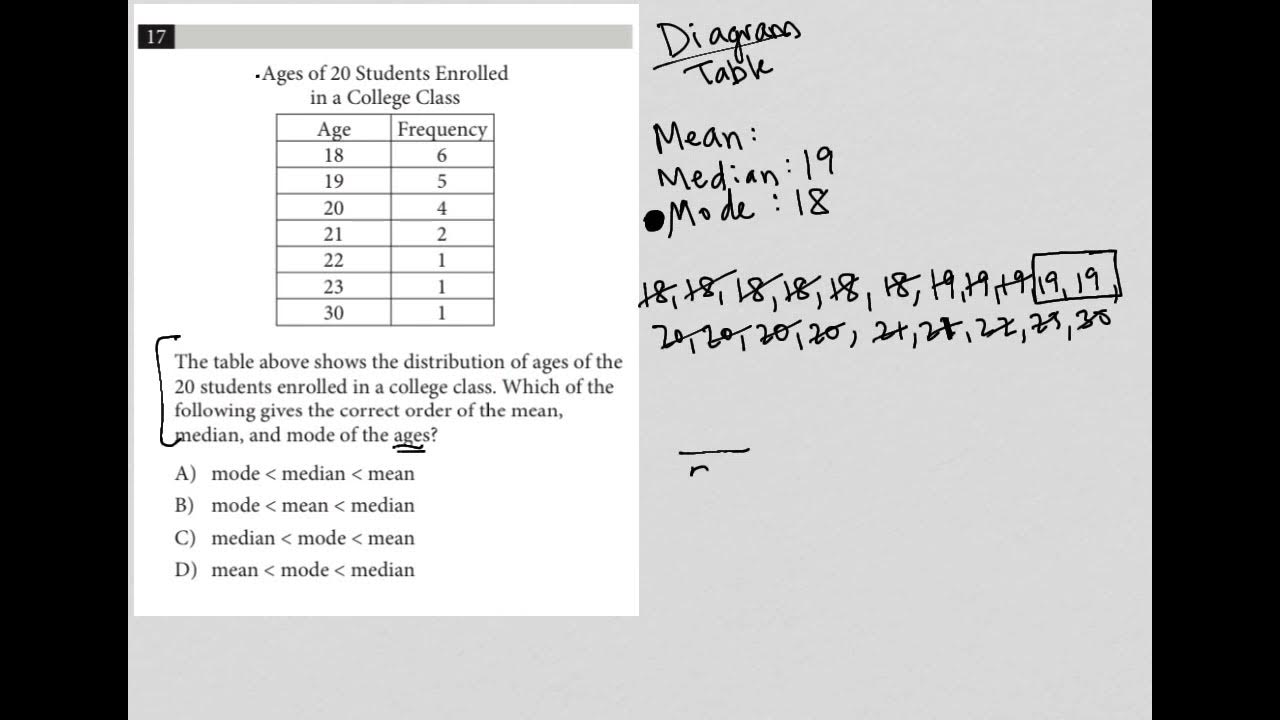 17
Ages of 20 Students Enrolled
in a College Class
Age Frequency
18 6
19 5
20 4
21 2
22 1
23 1
30 1
The table above shows the distribution of ages of the
20 students enrolled in a college class. Which of the
following gives the correct order of the mean,
median, and mode of the ages?
A) mode < median < mean
B) mode < mean < median
C) median < mode < mean
D) mean < mode < median
Diagrams
Table
Mean:
Median: 19
Mode: 18
18, 18, 18, 18, 18, 18, 19, 19, 19 19, 19,
20, 20, 20, 20, 21, 21, 22, 23, 30